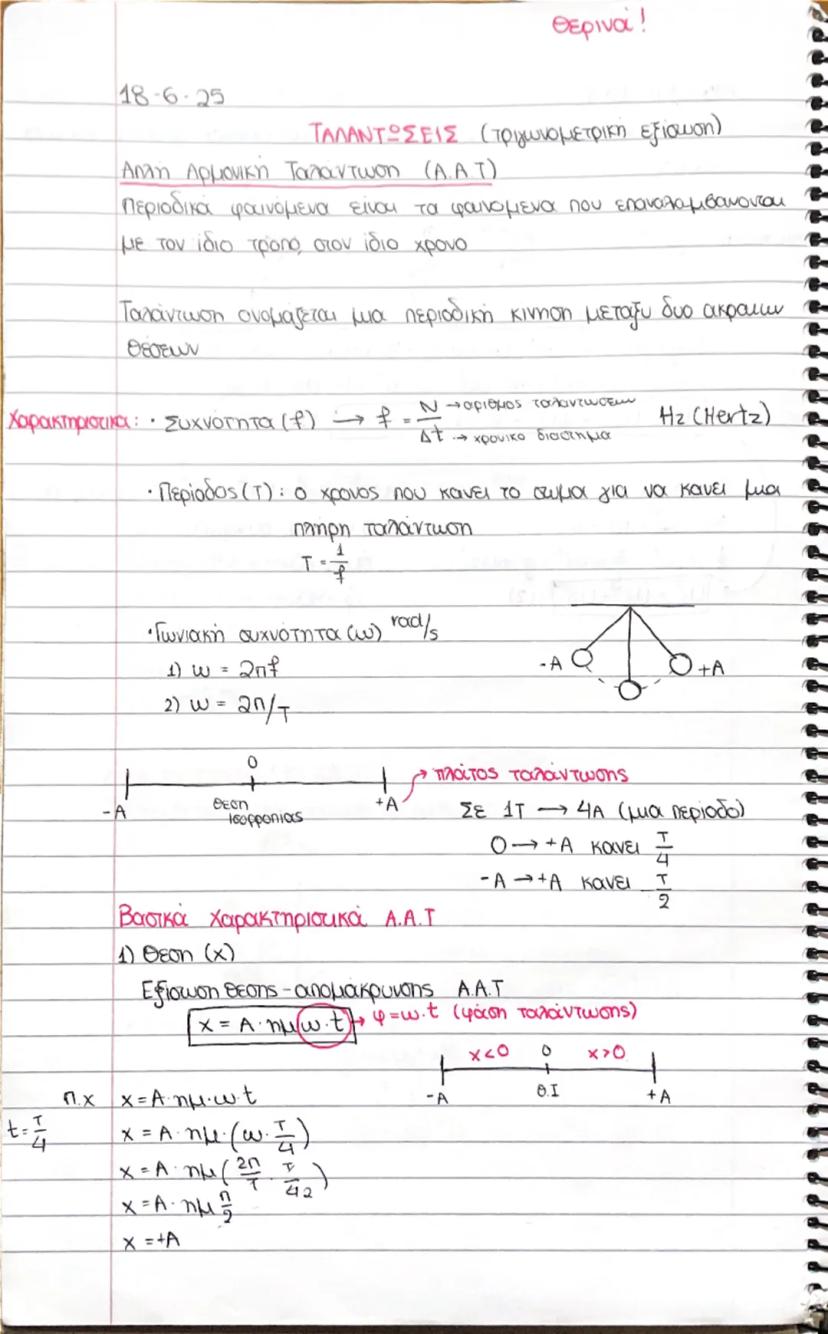 Θερινά!
18-6-25
ΤΑΛΑΝΤΩΣΕΙΣ (τριγωνομετρική εξίσωση)
Απλή Αρμονική Ταλάντωση (Α.Α.Τ)
Περιοδικά φαινόμενα είναι τα φαινομενα που επαναλαμβανονται
με τον ίδιο τρόπο, στον ίδιο χρονο
Ταλάντωση ονομάζεται μια περιοδική κινηση μεταξυ δυο ακραιων
θέσεων
Χαρακτηριστικα: · Συχνότητα (f) → f = N/Δt Hz (Hertz)
N → αριθμος ταλαντωσεων
Δt → χρονικο διαστημα
· Περίοδος (T) : ο χρονος που κανει το σωμα για να κανει μια
πληρη ταλάντωση
T = 1/f
· Γωνιακή συχνότητα (ω) rad/s
1) ω = 2πf
2) ω = 2π/T
-A +A
0
-A θεση ισορροπιας +A → πλάτος ταλάντωσης
Σε 1T → 4A (μια περίοδο)
0 → +A κανει T/4
-A → +A κανει T/2
Βασικά χαρακτηριστικά Α.Α.Τ
1) Θεση (x)
Εξισωση θεσης - απομάκρυνσης Α.Α.Τ
x = A · ημ(ω · t) → φ = ω · t (φάση ταλάντωσης)
x<0 0 x>0
-A Θ.Ι +A
π.x x = A · ημ · ω · t
t = T/4 x = A · ημ · (ω · T/4)
x = A · ημ (2π/T · T/4 2)
x = A · ημ π/2
x = +A